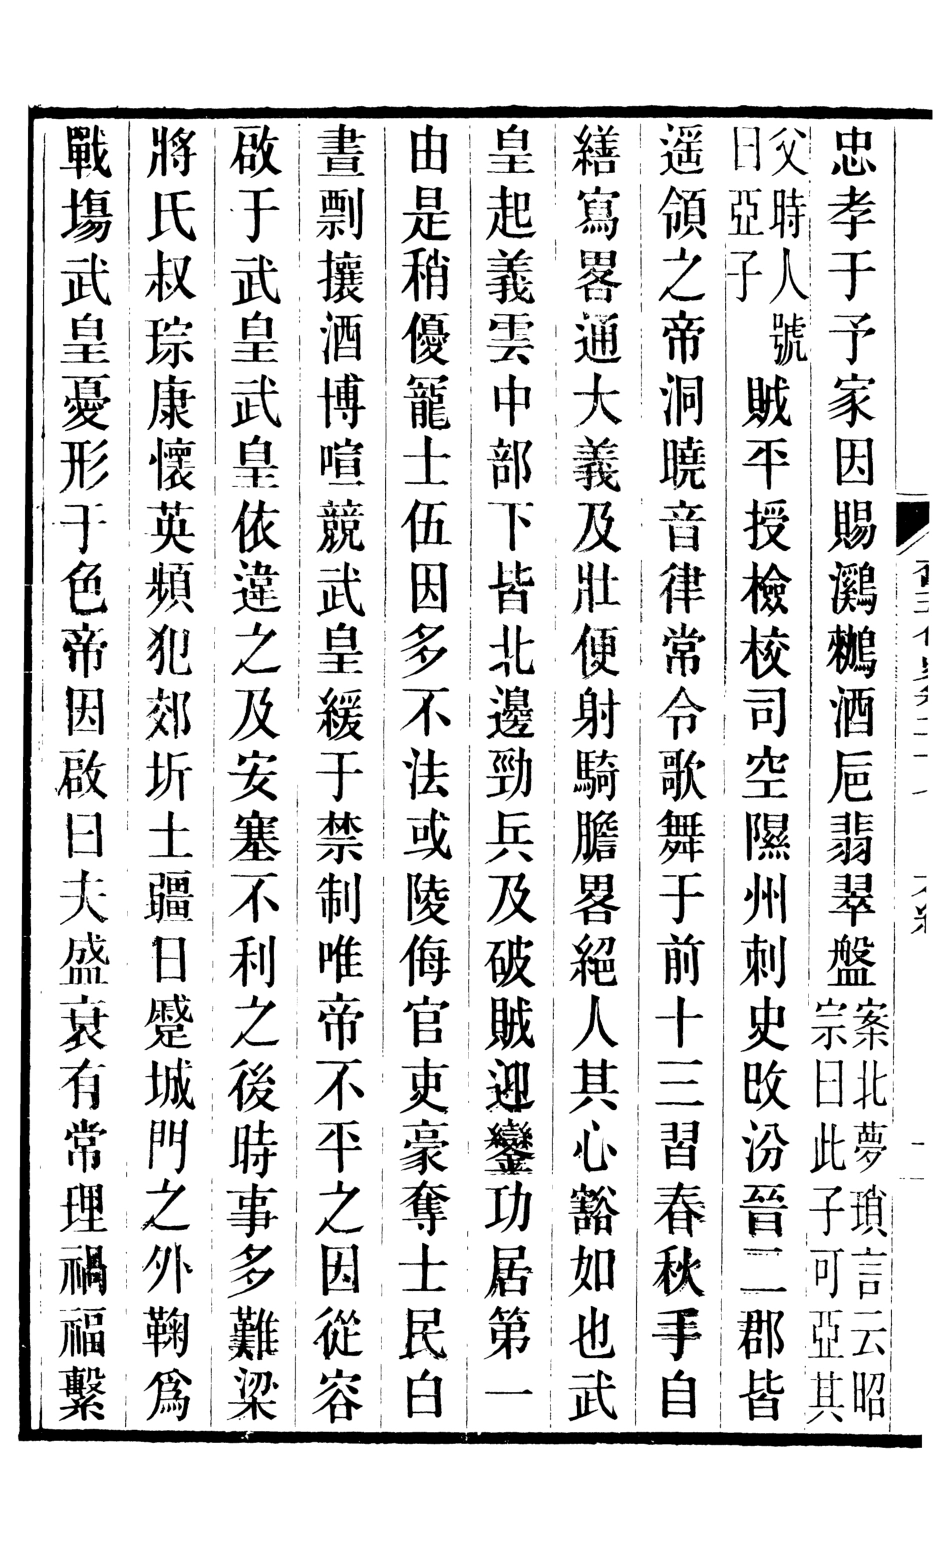 忠孝于予家因賜鸂鶒酒巵翡翠盤案北夢瑣言云昭宗曰此子可亞其
父時人號曰亞子賊平授檢校司空隰州刺史改汾晉二郡皆
遥領之帝洞曉音律常令歌舞于前十三習春秋手自
繕寫畧通大義及壯便射騎膽畧絕人其心豁如也武
皇起義雲中部下皆北邊勁兵及破賊迎鑾功居第一
由是稍優寵士伍因多不法或陵侮官吏豪奪士民白
晝剽攘酒博喧競武皇緩于禁制唯帝不平之因從容
啟于武皇武皇依違之及安塞不利之後時事多難梁
將氏叔琮康懷英頻犯郊圻土疆日蹙城門之外鞠爲
戰塲武皇憂形于色帝因啟曰夫盛衰有常理禍福繫